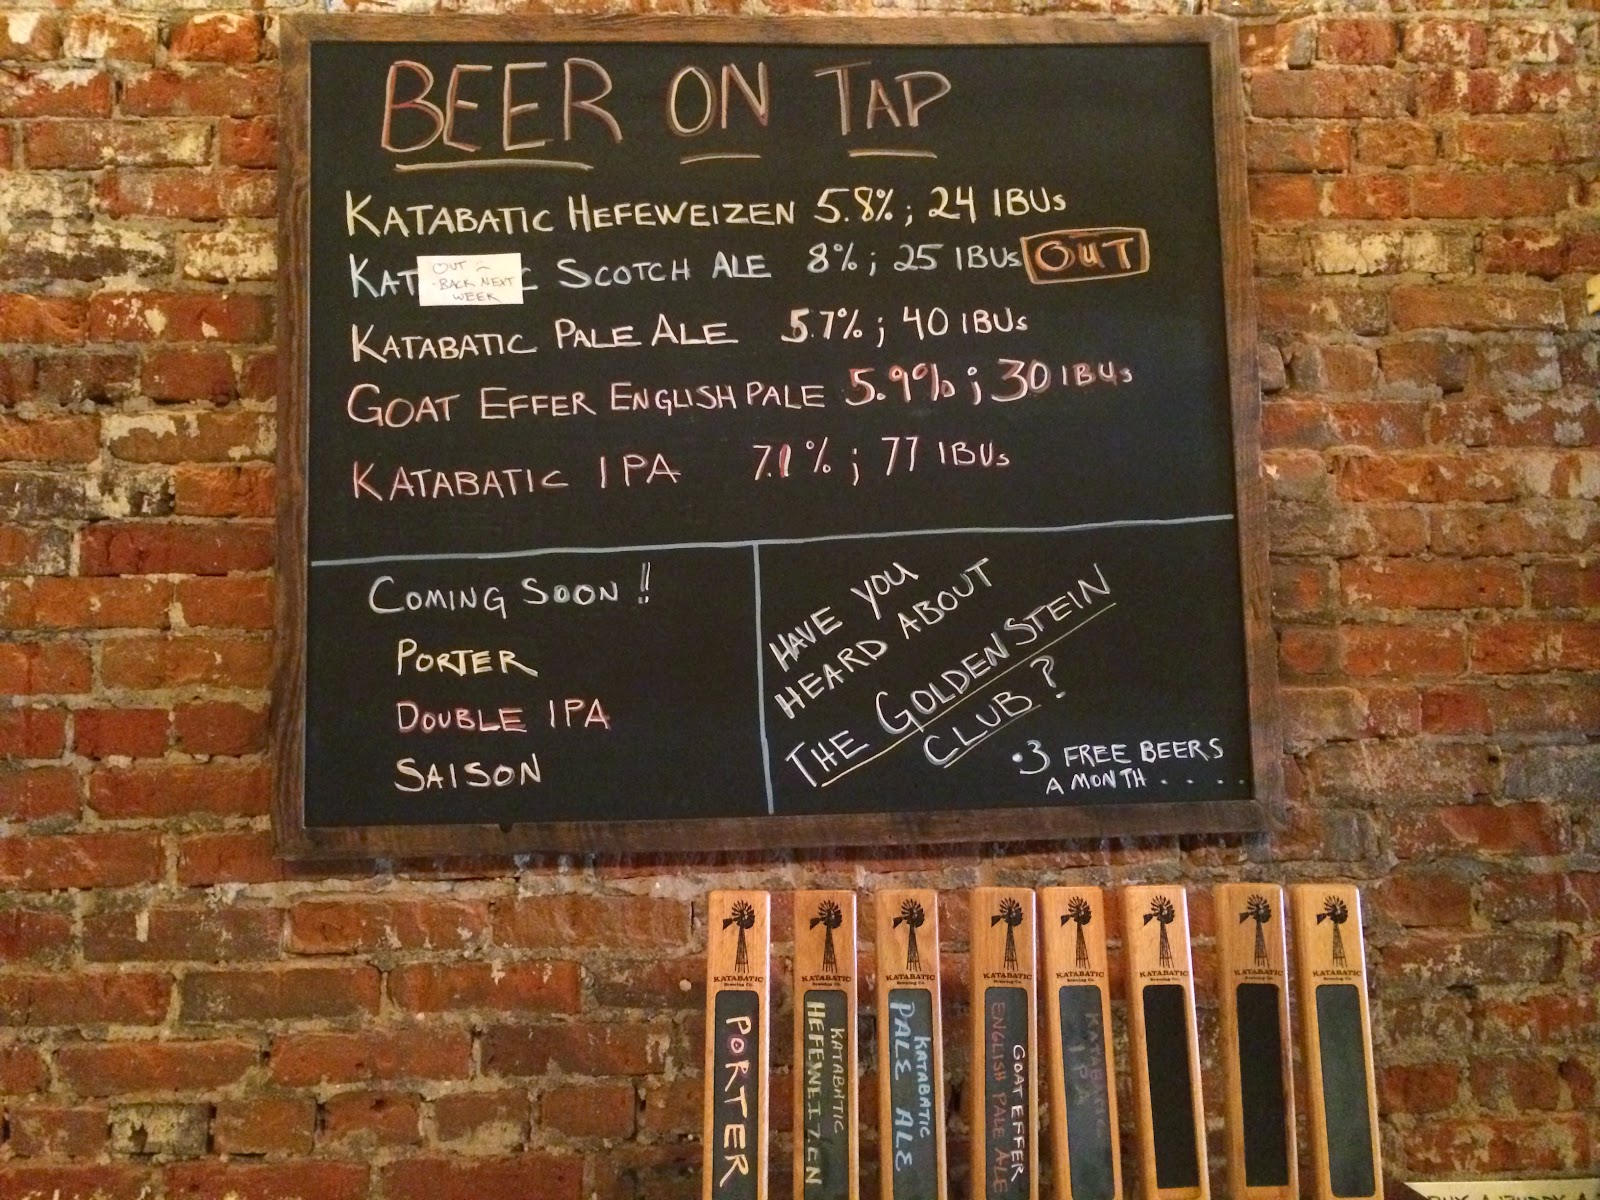 BEER ON TAP
KATABATIC HEFEWEIZEN 5.8%; 24 IBUs
KAT C SCOTCH ALE 8%; 25 IBUs OUT
OUT
-BACK NEXT
WEEK
KATABATIC PALE ALE 5.7%; 40 IBUs
GOAT EFFER ENGLISH PALE 5.9%; 30 IBUs
KATABATIC IPA 7.1%; 77 IBUs
COMING SOON!!
PORTER
DOUBLE IPA
SAISON
HAVE YOU
HEARD ABOUT
THE GOLDEN STEIN
CLUB?
•3 FREE BEERS
A MONTH.....
KATABATIC
Brewing Co.
PORTER
KATABATIC
Brewing Co.
KATABATIC
HEFEWEIZEN
KATABATIC
Brewing Co.
KATABATIC
PALE ALE
KATABATIC
Brewing Co.
GOAT EFFER
ENGLISH PALE ALE
KATABATIC
Brewing Co.
KATABATIC
IPA
KATABATIC
Brewing Co.
KATABATIC
Brewing Co.
KATABATIC
Brewing Co.